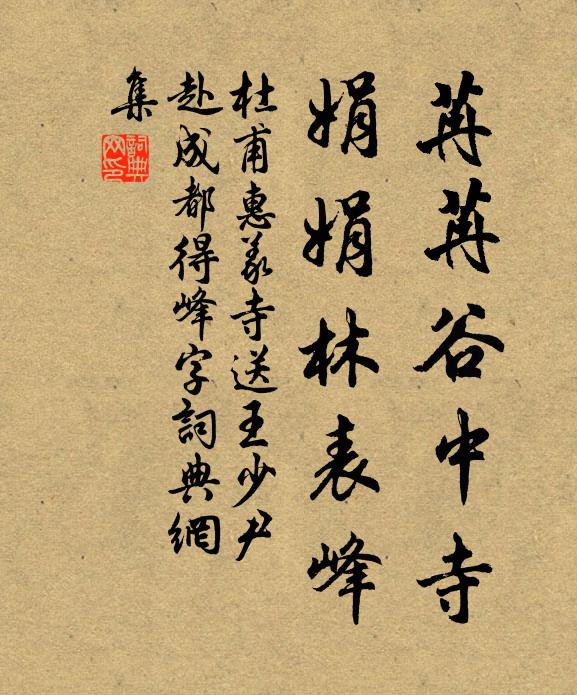 苒苒谷中寺
娟娟林表峰
杜甫惠义寺送王少尹
赴成都得峰字詞典網
集
詞典網印